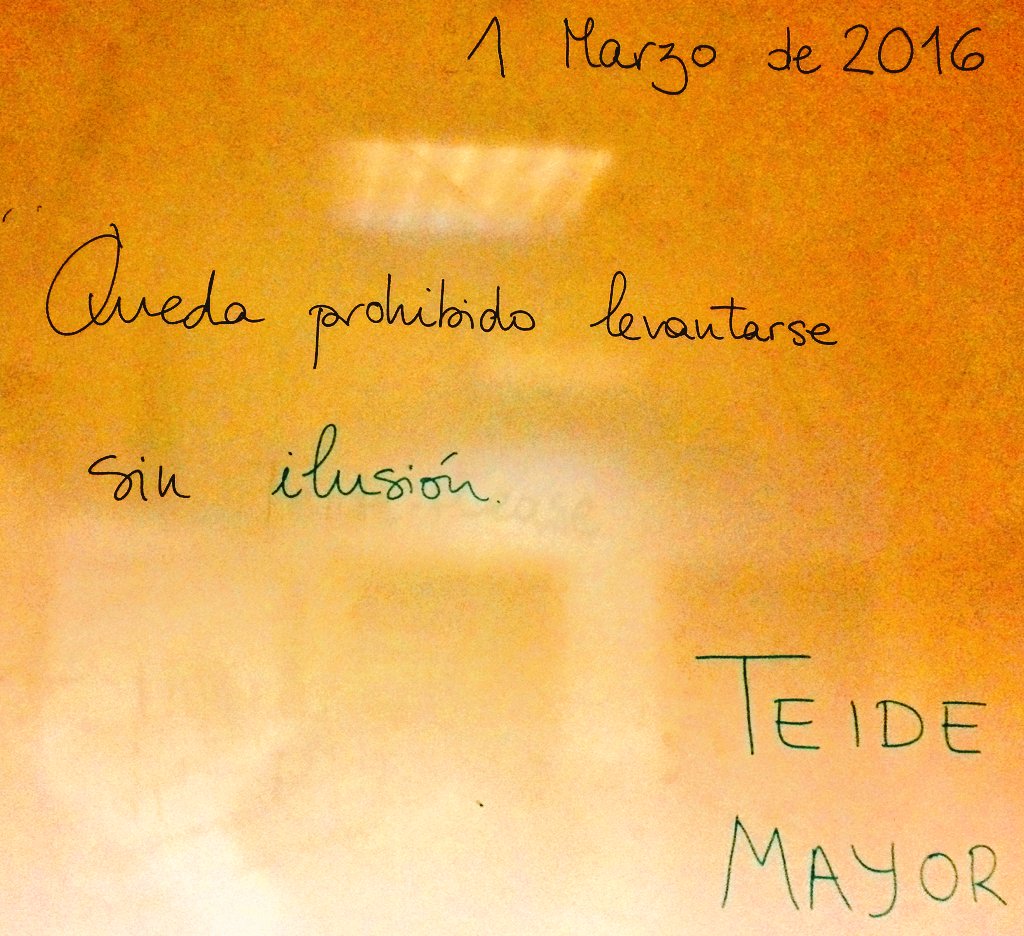 1 Marzo de 2016
Queda prohibido levantarse
sin ilusión.
TEIDE
MAYOR